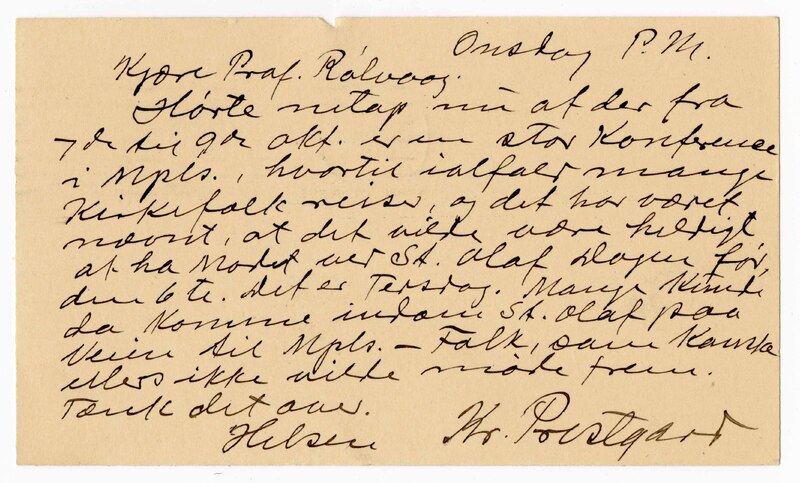 Onsdag P.M.
Kjære Prof. Rölvaag.
Hörte netop nu at der fra
7de til 9de okt. er en stor Konference
i Mpls., hvortil ialfald mange
Kirkefolk reiser, og det har været
nævnt, at det vilde være heldigt
at ha Mödet ved St. Olaf Dagen för,
den 6te. Det er Tersdag. Mange Kunde
da Komme indom St. Olaf paa
Veien til Mpls. — Folk, som Kanske
ellers ikke vilde möde frem.
Tænk det over.
Hilsen Kr. Prestgard